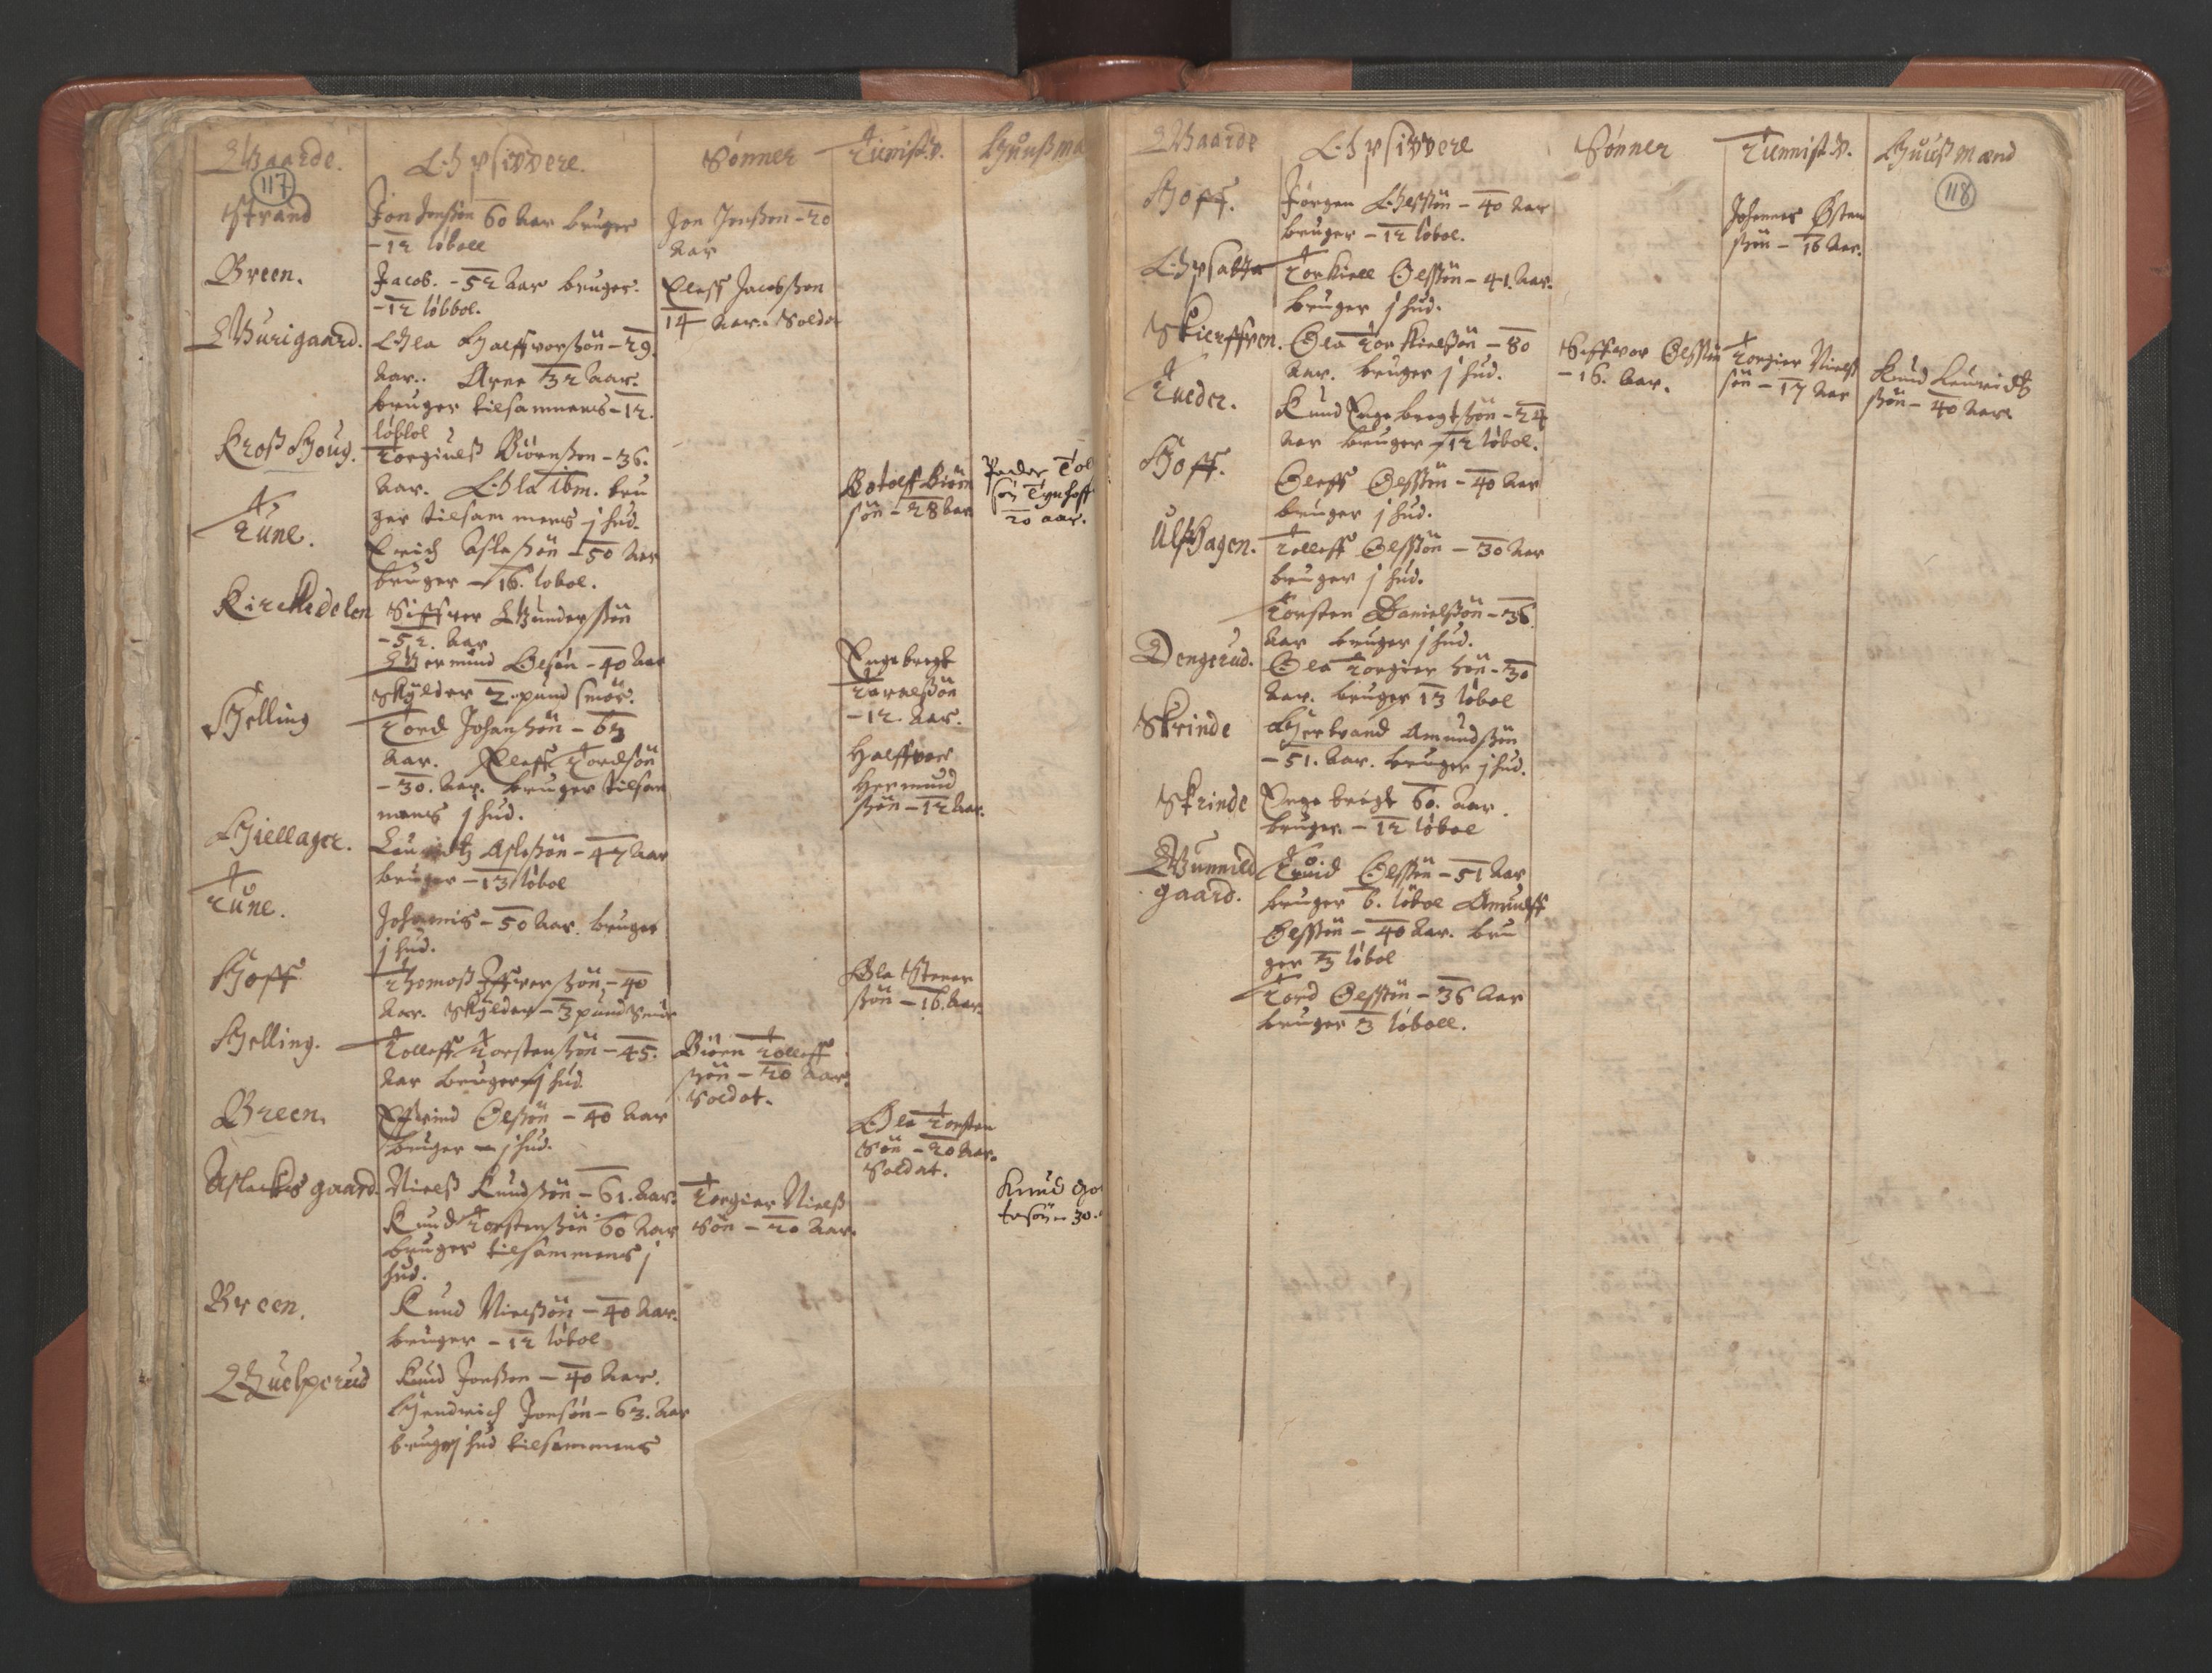 Gaarde.
Opsiddere.
Sønner
Tienist.d.
Huußmæ
117
Strand
Jon Jenssøn 60 Aar bruger
-12 løboll
Jon Jonssøn - 20
Aar
Breen.
Jacob. - 52 Aar bruger.
-12 løbbol.
Eleff Jacobssøn
14 Aar. Soldat
Gurigaard.
Ola Halffvorssøn - 29.
Aar. Arne 32 Aar.
bruger tilsammens - 12.
løbbol
Kroß Houg.
Torgiulß Biørnssøn - 36.
Aar. Ola ibm. bru
ger tilsammens j hud.
Botolff Biørn
søn - 28 Aar
Peder Tol
søn
20 aar.
Tune.
Erich Aslessøn - 50 Aar
bruger - 16. løbol.
Kirckedelen
Siffver Gunderssøn
- 52. Aar
Germund Olsøn - 40 Aar
skylder 2. pund smør.
Engebregt
søn
- 12. Aar.
Helling
Tord Johanssøn - 63
Aar. Eleff Tordsøn
- 30. Aar. bruger tilsam
mens j hud.
Halffvor
Hermund
søn - 12 Aar.
Hiellager.
Lauridtz Aslessøn - 47 Aar
bruger - 13 løbol
Tune.
Johannis - 50 Aar. bruger
j hud.
Hoff
Thomoß Iffverssøn - 40
Aar. skylder - 3 pund smør
Ola Stener
søn - 16. Aar.
Helling.
Tolleff Torstenssøn - 45.
Aar bruger j hud
Biørn Tolleff
søn - 20 Aar.
Soldat.
Breen.
Effvind Olssøn - 40 Aar
bruger - j hud.
Ola Torsten
Søn - 20 Aar.
Soldat.
Aslacks gaard.
Nielß Knudssøn - 61. Aar.
Knud Torstenssøn 60 Aar
bruger tilsammens j
hud.
Torgier Nielß
Søn - 20 Aar.
Knud
30.
Breen.
Knud Nielssøn - 40 Aar.
bruger - 12 løbol
Quelperud
Knud Jonssøn - 40 Aar.
Hendrich Jonsøn - 63. Aar
bruger j hud tilsammens
Gaarde
Opsiddere
Sønner
Tiennist.d.
Huußmænd
118
Hoff.
Jørgen Olssøn - 40 Aar
bruger - 12 løbol.
Johannes Østen
søn - 16 Aar.
Opsalte
Torkiell Olssøn - 41. Aar.
bruger j hud.
Skierffven.
Ola Torkielsøn - 80
Aar. bruger j hud.
Siffvor Olssøn
- 16. Aar.
Torgier Nielß
søn - 17 Aar
Knud Lauridtz
søn - 40 Aar.
Tueder.
Knud Engebregtssøn - 24
Aar bruger 12 løbol.
Hoff.
Oleff Olssøn - 40 Aar
bruger j hud.
Ulshagen.
Tolleff Olssøn - 30 Aar
bruger j hud.
Torsten Danielssøn - 36
Aar bruger j hud.
Dengerud.
Ola Torgierssøn - 30
Aar. bruger 13 løbol
Skrinde
Herbrand Amundssøn
- 51. Aar. bruger j hud.
Skrinde
Engebrigt 60. Aar.
bruger - 12 løbol
Gunnild
gaard.
Olssøn - 51 Aar
bruger 6. løbol
Olssøn - 40 Aar. bru
ger 3 løbol
Tord Olssøn - 36 Aar
bruger 3 løboll.